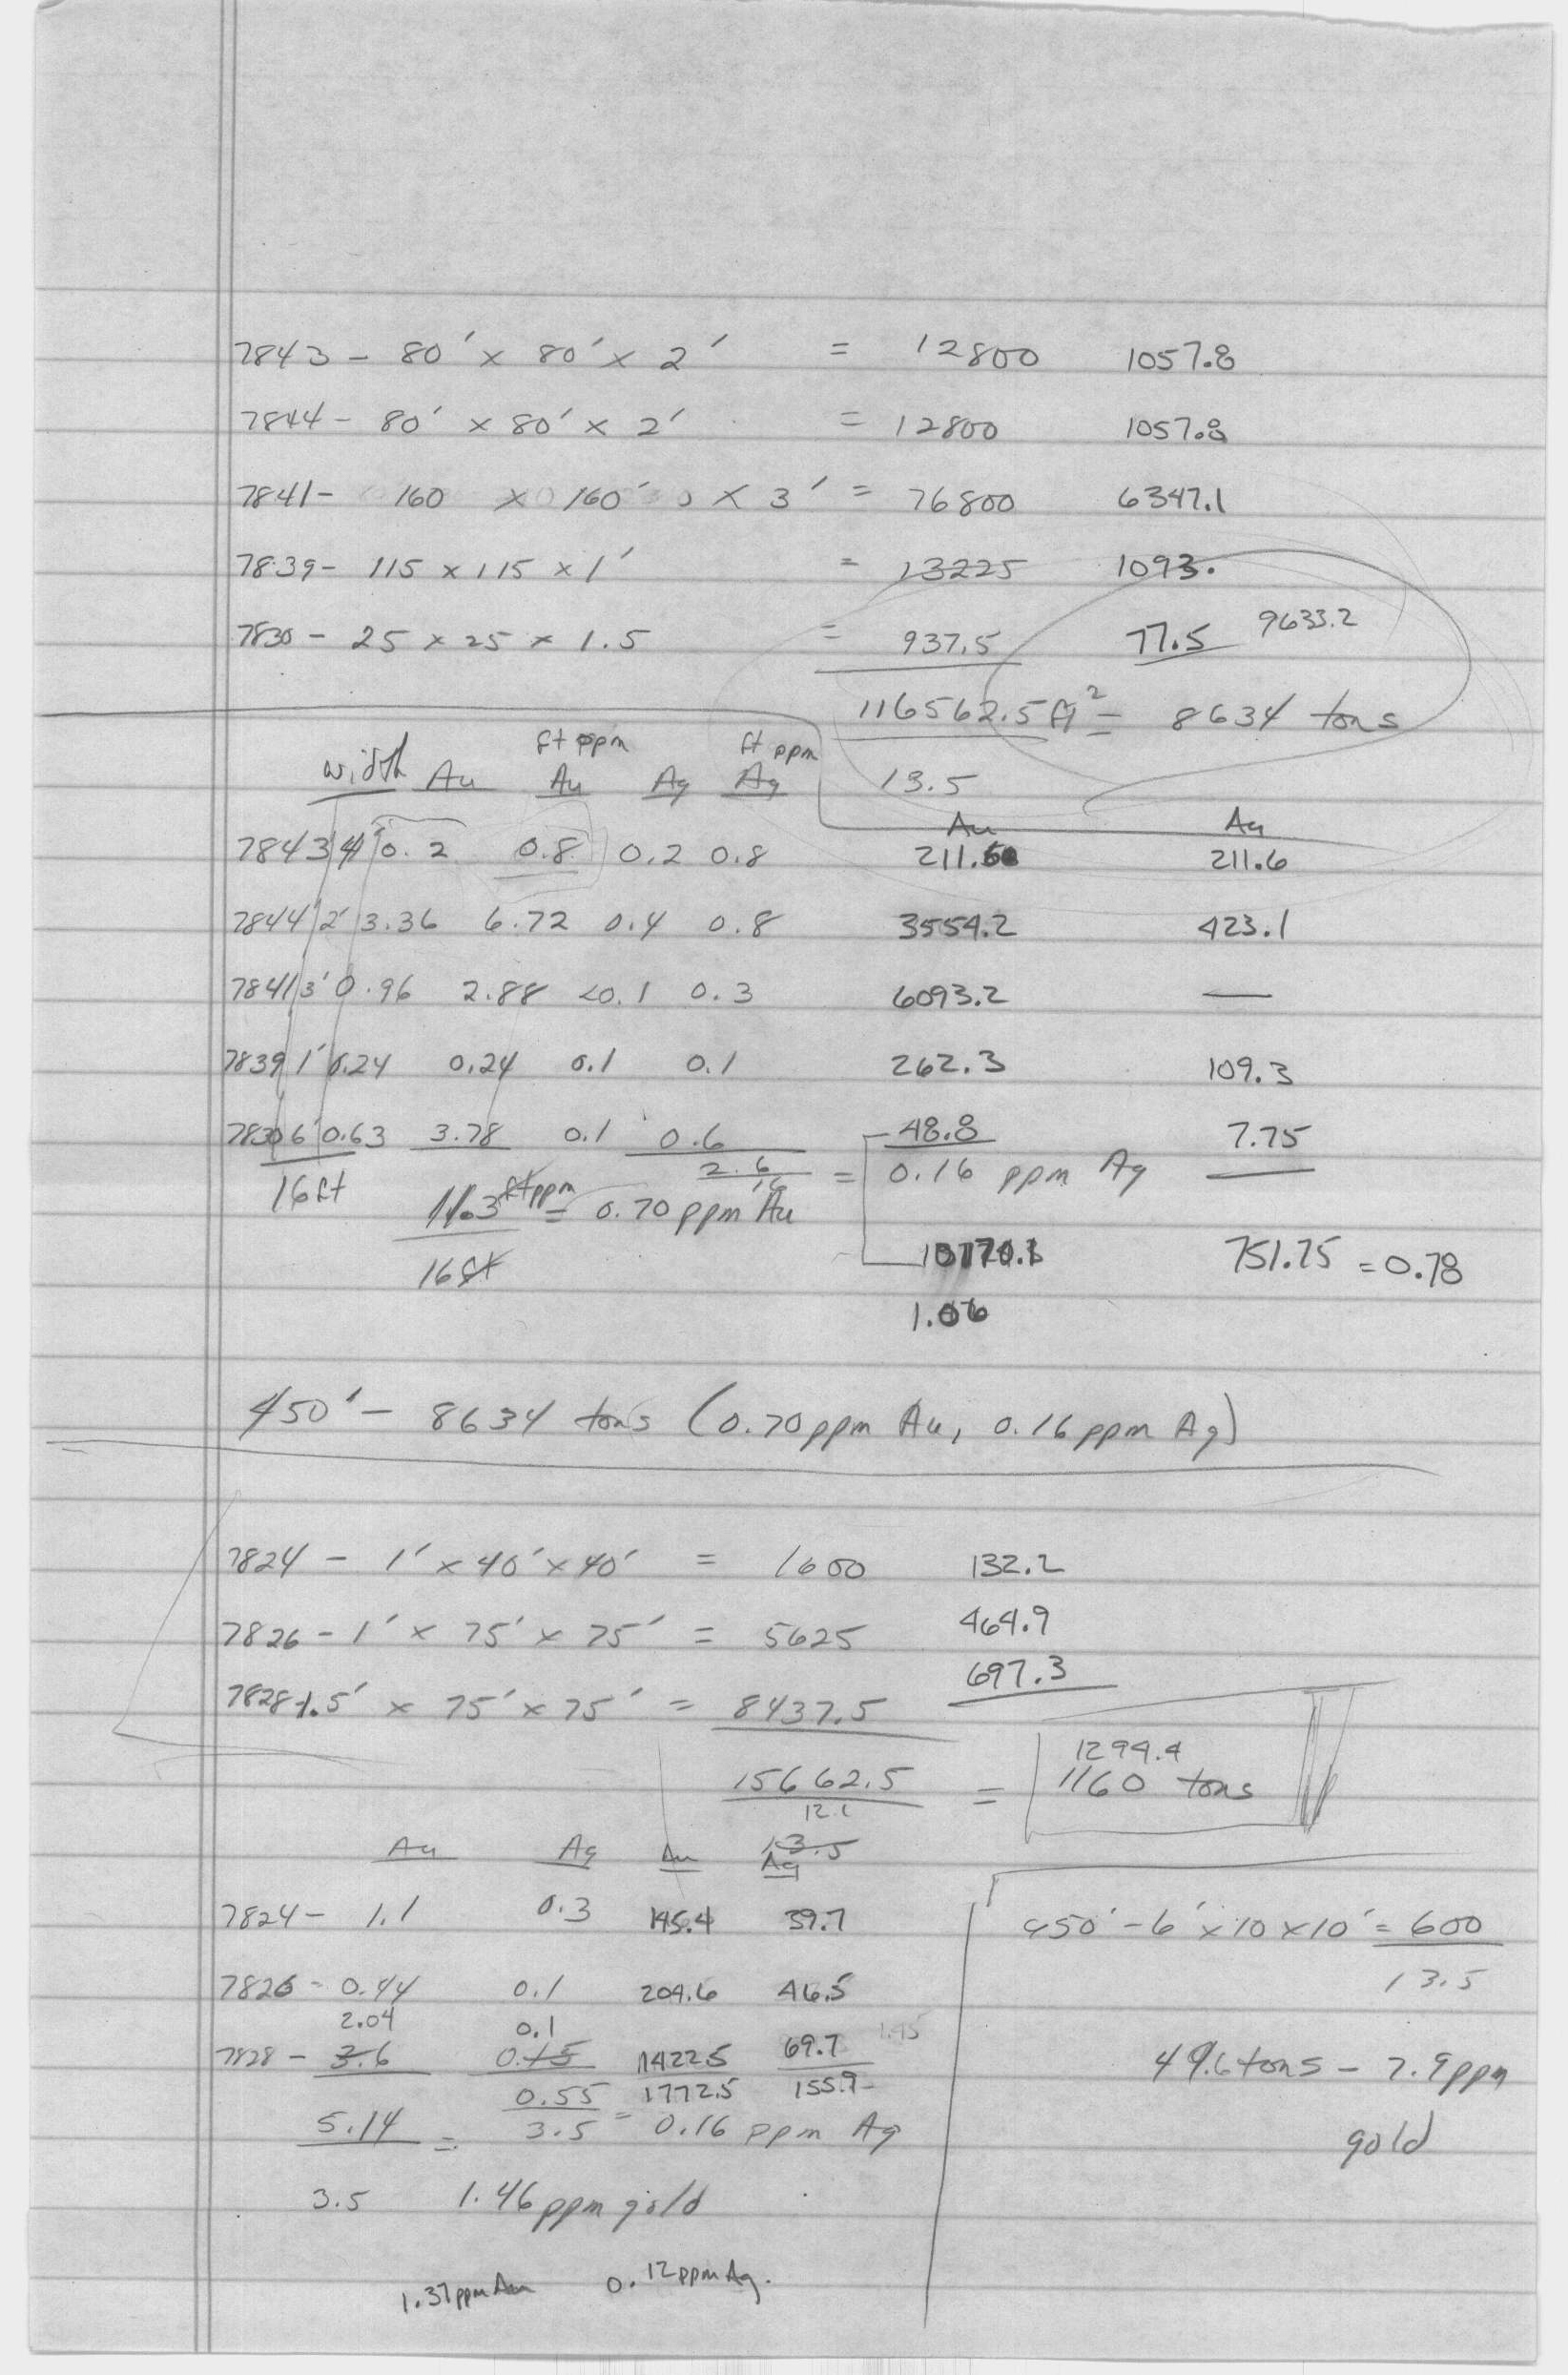 7843 - 80' x 80' x 2' = 12800 1057.8
7844 - 80' x 80' x 2' = 12800 1057.8
7841 - 160 x 160' x 3' = 76800 6347.1
7839 - 115 x 115 x 1' = 13225 1093.
7830 - 25 x 25 x 1.5 = 937.5 77.5 9633.2
116562.5 ft² = 8634 tons
13.5
width Au ft ppm Au Ag ft ppm Ag
Au Ag
7843 4' 0.2 0.8 0.2 0.8 211.6 211.6
7844 2' 3.36 6.72 0.4 0.8 3554.2 423.1
7841 3' 0.96 2.88 <0.1 0.3 6093.2 —
7839 1' 0.24 0.24 0.1 0.1 262.3 109.3
7830 6' 0.63 3.78 0.1 0.6 48.8 7.75
16ft 2.6 / 16 = 0.16 ppm Ag
11.3 ft ppm = 0.70 ppm Au
16 ft
10170.1 751.75 = 0.78
1.06
450' - 8634 tons (0.70 ppm Au, 0.16 ppm Ag)
7824 - 1' x 40' x 40' = 1600 132.2
7826 - 1' x 75' x 75' = 5625 464.9
7828 - 1.5' x 75' x 75' = 8437.5 697.3
1294.4
15662.5 = 1160 tons
12.1
13.5
Au Ag Au Ag
7824 - 1.1 0.3 145.4 39.7
7826 - 0.44 0.1 204.6 46.5
2.04 0.1
7828 - 3.6 0.15 1422.5 69.7 1.45
0.55 1772.5 155.9
5.14 = 3.5 = 0.16 ppm Ag
3.5 1.46 ppm gold
1.37 ppm Au 0.12 ppm Ag.
450' - 6' x 10 x 10' = 600
13.5
49.6 tons - 7.9 ppm
gold